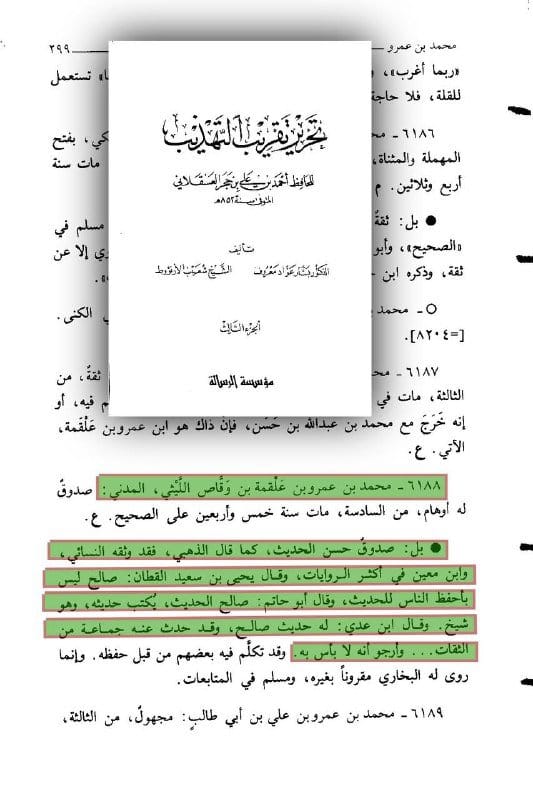 محمد بن عمرو
٣٩٩
«ربما أغرب»،
تستعمل
للقلة، فلا حاجة
٦١٨٦ -
بفتح
المهملة والمثناة،
مات سنة
أربع وثلاثين. م
● بل: ثقةٌ
مسلم في
«الصحيح»، وأبو
إلا عن
ثقة، وذكره ابن
○ - محمد
الكنى.
[=٨٢٠٤].
٦١٨٧ -
ثقةٌ، من
الثالثة، مات في
فيه، أو
تحرير تقريب التهذيب
للحافظ أحمد بن علي بن حجر العسقلاني
المتوفى سنة ٨٥٢ هـ
تأليف
الدكتور بشار عواد معروف
الشيخ شعيب الأرنؤوط
الجزء الثالث
مؤسسة الرسالة
إنه خَرَجَ مع محمد بن عبدالله بن حَسَن، فإن ذاك هو ابن عمرو بن عَلْقَمة،
الآتي. ع.
٦١٨٨ - محمد بن عمرو بن عَلْقمة بن وَقَّاص اللَّيْثي، المدني: صدوقٌ
له أوهام، من السادسة، مات سنة خمس وأربعين على الصحيح. ع.
● بل: صدوقٌ حسن الحديث، كما قال الذهبي، فقد وثقه النسائي،
وابن معين في أكثر الروايات، وقال يحيى بن سعيد القطان: صالح ليس
بأحفظ الناس للحديث، وقال أبو حاتم: صالح الحديث، يُكتب حديثه، وهو
شيخ. وقال ابن عدي: له حديث صالح، وقد حدث عنه جماعة من
الثقات... وأرجو أنه لا بأس به. وقد تكلَّم فيه بعضهم من قبل حفظه. وإنما
روى له البخاري مقروناً بغيره، ومسلم في المتابعات.
٦١٨٩ - محمد بن عمرو بن علي بن أبي طالبٍ: مجهولٌ، من الثالثة،